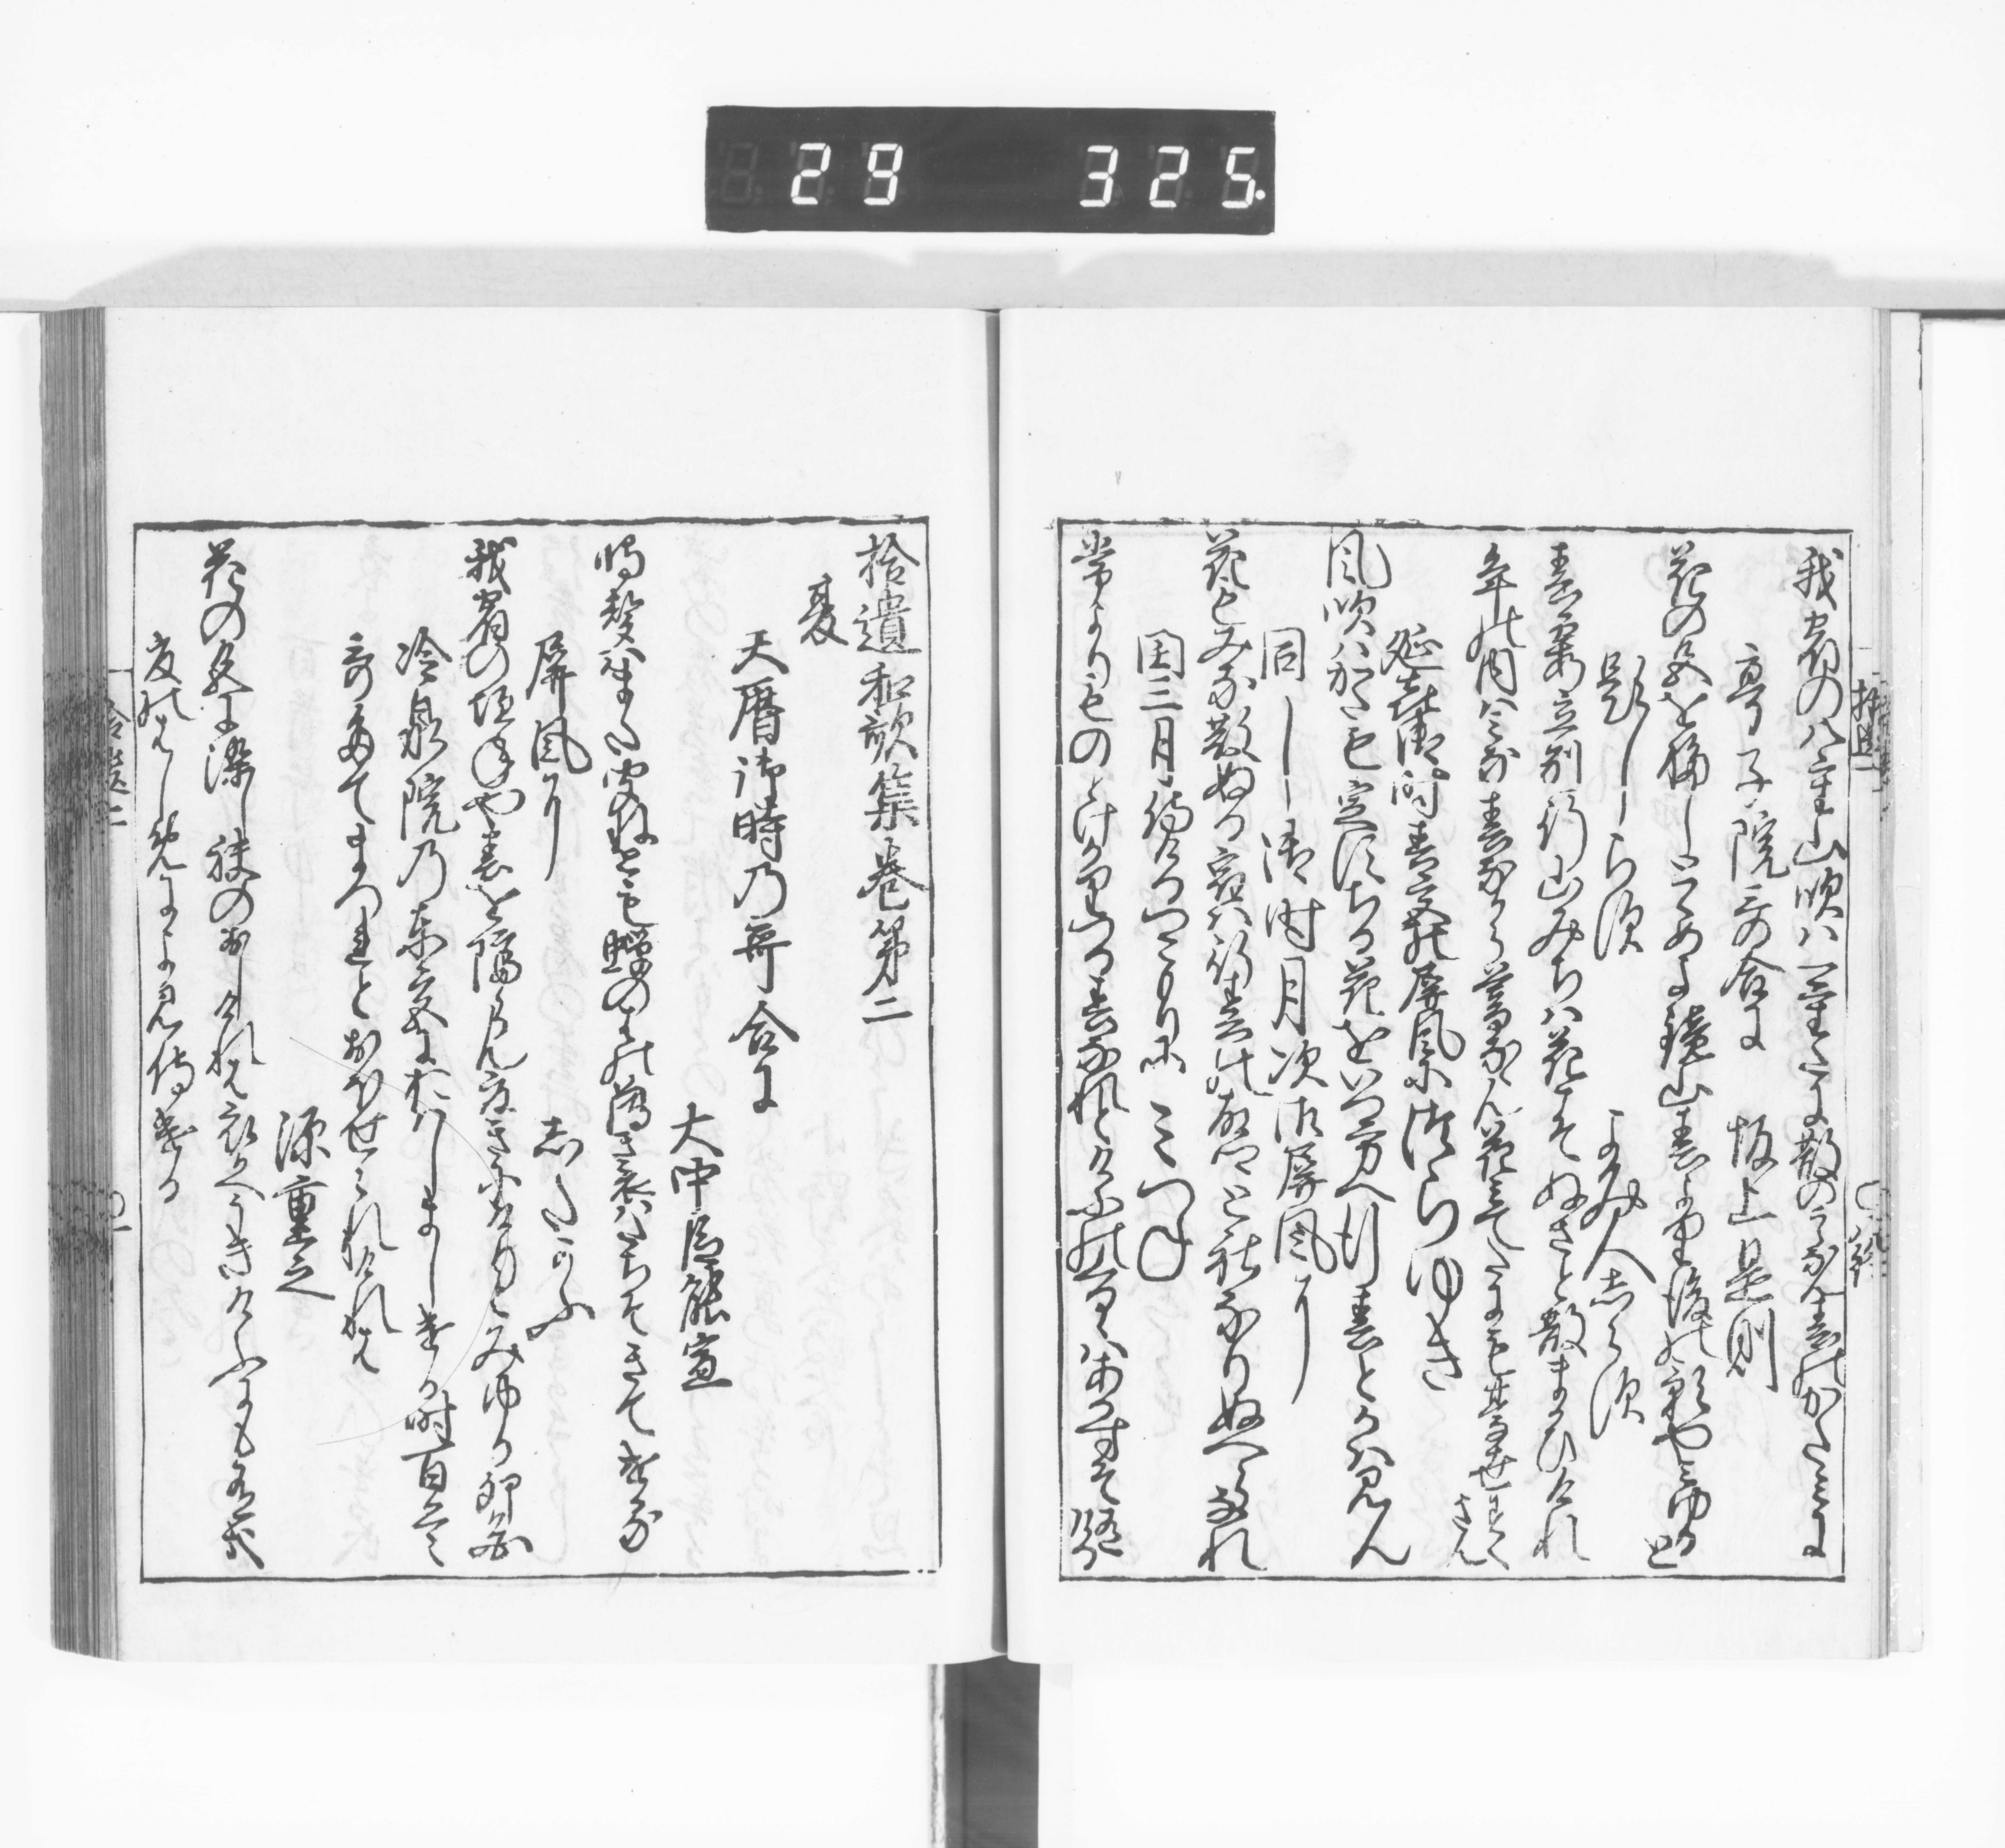 29 325.
我宿の八重山吹は一重たに散のこらなん春のかたみに
亭子院哥合に 坂上是則
花の色をうつしとゝめよ鏡山春より後の影やみゆると
題しらす よみ人しらす
春霞立別行山みちは花こそぬさと散まかひけれ
年の内はみな春なから暮なゝん花見てたにもうき世すくさん
延喜御時春宮御屏風に つらゆき
風吹はかたも定めすちる花をいつかたへ行春とかはみん
同し御時月次御屏風に
花もみな散ぬる宿は行春の故郷とこそ成ぬへらなれ
閏三月侍けるつこもりに みつね
常よりものとけかりつる春なれとけふの暮るはあかすそ有ける
拾遺和歌集巻第二
夏
天暦御時乃哥合に
大中臣能宣
鳴声はまたきかねとも蝉の羽の薄き衣はたちそきてける
屏風に したかふ
我宿の垣ねや春を隔らん夏きにけりとみゆる卯花
冷泉院乃東宮におはしましける時百首
哥奉てまつれとおほせられけれは
源重之
花の色に染し袂のおしけれは衣かへうきけふにも有哉
夏のはしめによみ侍ける